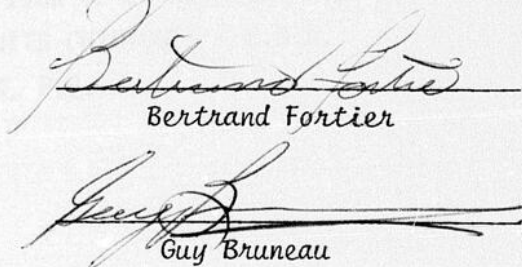 Bertrand Fortier
Bertrand Fortier
Guy B
Guy Bruneau